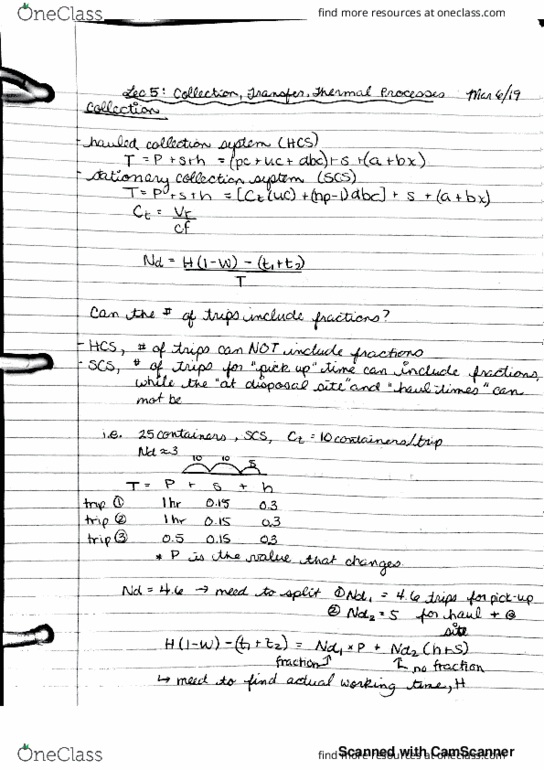 OneClass
find more resources at oneclass.com
Lec 5: Collection, Transfer, Thermal Processes Mar 6/19
Collection
- hauled collection system (HCS)
T = P + s + h = (pc + uc + dbc) + s + (a + bx)
- stationary collection system (SCS)
T = P + s + h = [Ct (uc) + (np - 1) dbc] + s + (a + bx)
Ct = Vr
cf
Nd = H(1-W) - (t1 + t2)
T
Can the # of trips include fractions?
- HCS, # of trips can NOT include fractions
- SCS, # of trips for "pick up" time can include fractions,
while the "at disposal site" and "haul times" can
not be
i.e. 25 containers, SCS, Ct = 10 containers/trip
Nd ≈ 3
10 10 5
T = P + s + h
trip ① 1hr 0.15 0.3
trip ② 1hr 0.15 0.3
trip ③ 0.5 0.15 0.3
* P is the value that changes
Nd = 4.6 → need to split ① Nd1 = 4.6 trips for pick-up
② Nd2 = 5 for haul + @
site
H(1-W) - (t1 + t2) = Nd1 * P + Nd2 (h + s)
fraction ↑ ↑ no fraction
↳ need to find actual working time, H
OneClass
find more resources at oneclass.com
Scanned with CamScanner